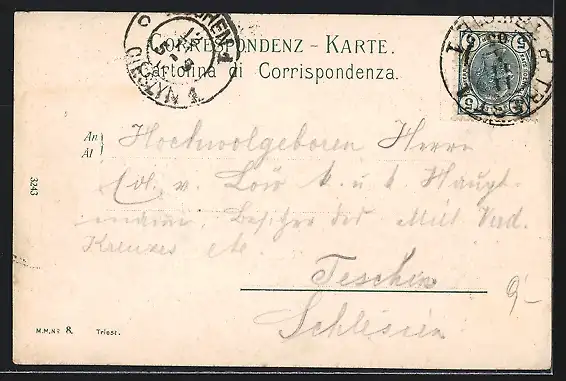 CORRESPONDENZ - KARTE.
Cartolina di Corrispondenza.
5 5
5 5
TRIEST
An
Al
Hochwolgeboren Herrn
Ed. v. Löw k. u. k. Haupt-
mann, Besitzer des Milit. Verd.
Kreuzes etc
Teschen
Schlesien
9-
3243
M.M.No 8. Triest.